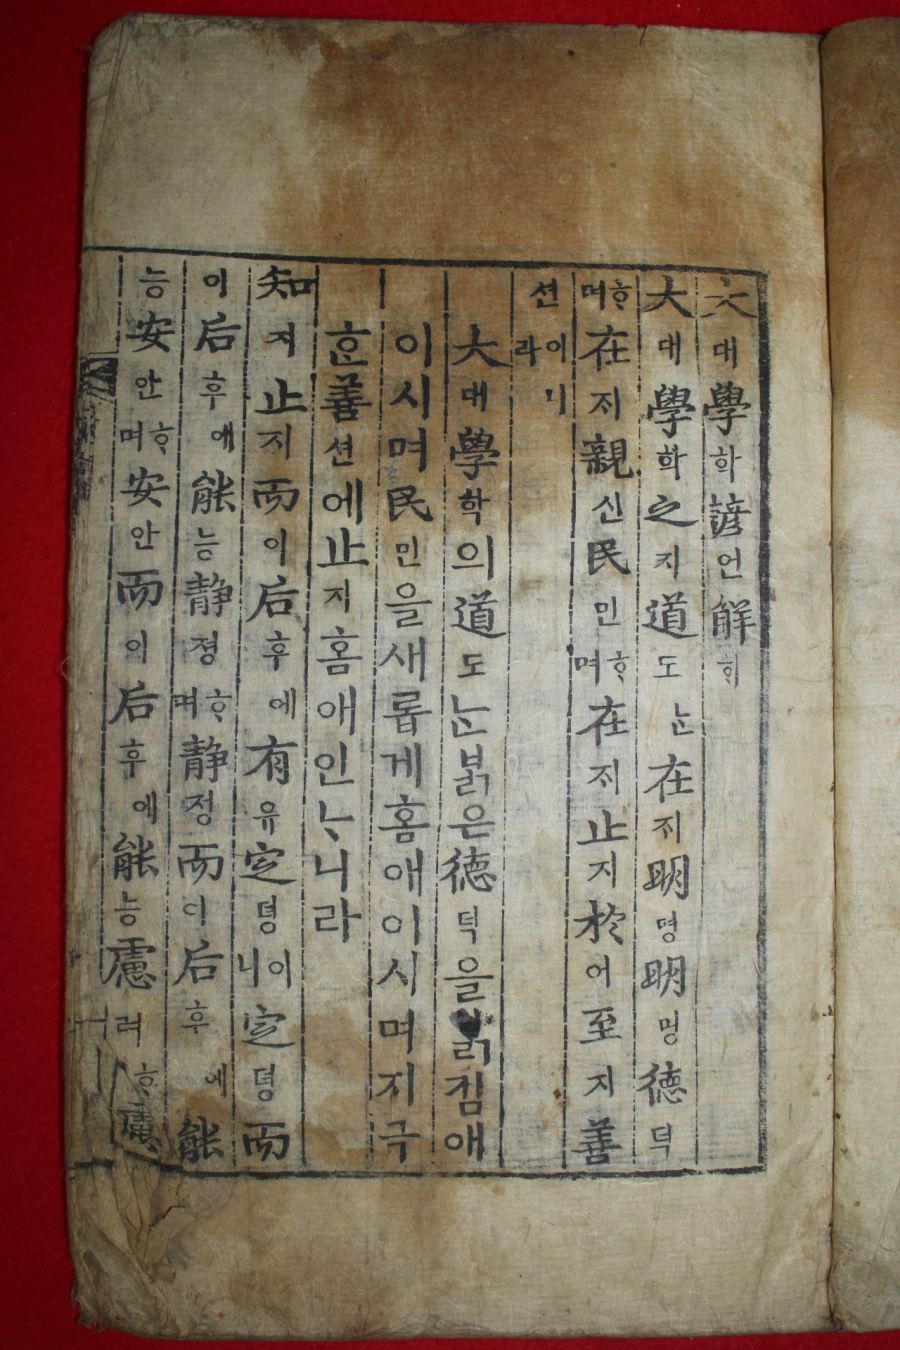 大대學학諺언解ᄒᆡ
大대學학之지道도ᄂᆞᆫ在ᄌᆡ明명明명德덕
ᄒᆞ며在ᄌᆡ親신民민ᄒᆞ며在ᄌᆡ止지於어至지善
션이니라
大대學학의道도ᄂᆞᆫ붉은德덕을ᄇᆞᆰ킴애
이시며民민을새롭게홈애이시며지극
ᄒᆞᆫ善션에止지홈애인ᄂᆞ니라
知지止지而이后후에有유定뎡이니定뎡而
이后후에能능静졍ᄒᆞ며静정而이后후에能
능安안ᄒᆞ며安안而이后후에能능慮려ᄒᆞ慮